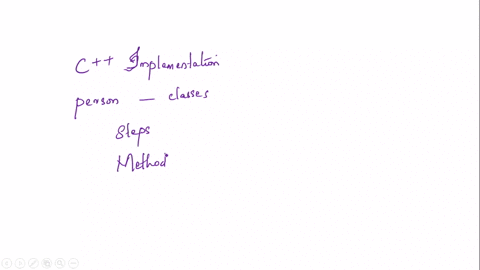 C++ Implementation
person — classes
Steps
Method